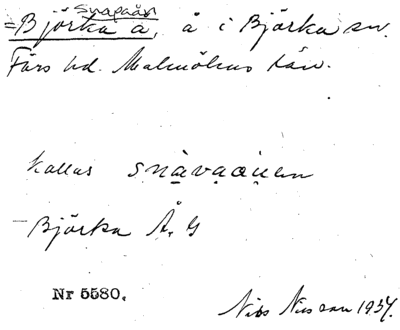 Snapaån
=Björka å, å i Björka sn.
Färs hd. Malmöhus län.
kallas snàvaoüen
Björka Å. G
Nr 5580.
Nils Nilsson 1934.